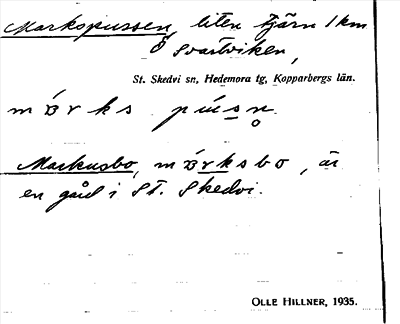 Markspussen, liten tjärn 1 km
Ö Svartviken,
St. Skedvi sn, Hedemora tg, Kopparbergs län.
mɑ́rks pússn̥
Markusbo, mɑ́rksbo, är
en gård i St. Skedvi.
OLLE HILLNER, 1935.